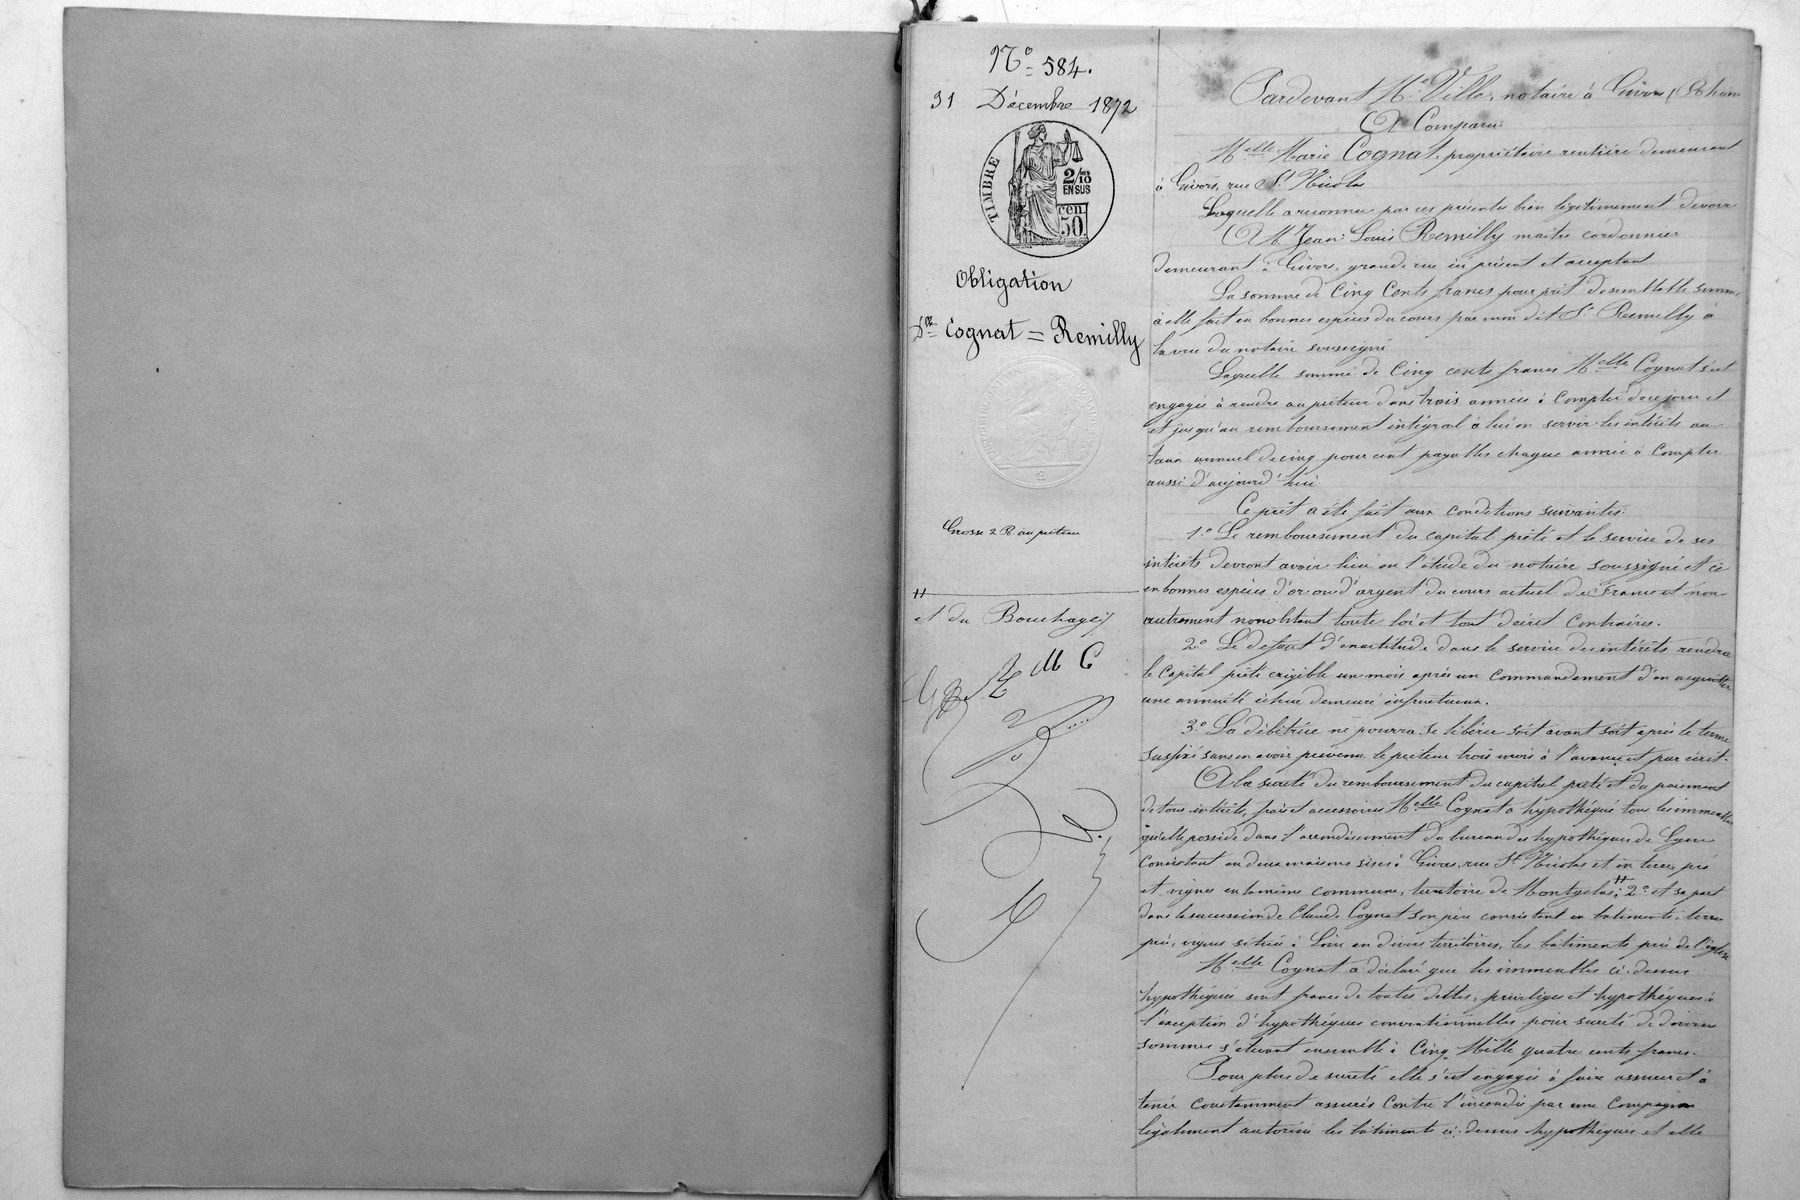 N° 584.
31 Décembre 1872
TIMBRE
2/10
EN SUS
cen.
50
Obligation
Dlle Cognat = Remilly
Grosse 2 R. au prêteur
H
et du Bouchage /
M C
Pardevant Me Ville, notaire à Givors (Rhône
A Comparu
Melle Marie Cognat, propriétaire rentière demeurant
à Givors, rue St Nicolas
Laquelle a reconnu par ces présentes bien légitimement devoir
A M. Jean-Louis Remilly maître cordonnier
demeurant à Givors, grande rue ici présent et acceptant
La somme de Cinq Cents francs pour prêt de semblable somme
à elle fait en bonnes espèces du cours par mon dit Sr Remilly à
la vue du notaire soussigné
Laquelle somme de Cinq cents francs Melle Cognat s'est
engagée à rendre au prêteur dans trois années à Compter de ce jour et
et jusqu'au remboursement intégral à lui en servir les intérêts au
taux annuel de cinq pour cent payables chaque année à Compter
aussi d'aujourd'hui
Ce prêt a été fait aux conditions suivantes:
1° Le remboursement du capital prêté et le service de ses
intérêts devront avoir lieu en l'étude du notaire soussigné et ce
en bonnes espèces d'or ou d'argent du cours actuel de France et non
autrement nonobstant toute loi et tout décret Contraires.
2° Le défaut d'exactitude dans le service des intérêts rendra
le Capital prêté exigible un mois après un Commandement d'en acquitter
une annuité échue demeuré infructueux.
3° La débitrice ne pourra se libérer soit avant soit après le terme
susfixé sans en avoir prévenu le prêteur trois mois à l'avance et par écrit.
A la sureté du remboursement du capital prêté et du paiement
de tous intérêts, frais et accessoires Melle Cognat a hypothéqué tous les immeubles
qu'elle possède dans l'arrondissement du bureau des hypothèques de Lyon
Consistant en deux maisons sises à Givors, rue St Nicolas et en terres, prés
et vignes en la même commune, territoire de Montgelas H; 2° et sa part
dans la succession de Claude Cognat son père consistant en batiments, terres
prés, vignes situés à Loire en divers territoires, les batiments près de l'église
Melle Cognat a déclaré que les immeubles ci-dessus
hypothéqués sont francs de toutes dettes, privilèges et hypothèques à
l'exception d'hypothèques conventionnelles pour sureté de diverses
sommes s'élevant ensemble à Cinq Mille quatre cents francs.
Pour plus de sureté elle s'est engagée à faire assurer et à
tenir Constamment assurés Contre l'incendie par une Compagnie
légalement autorisée les bâtiments ci-dessus hypothéqués et elle